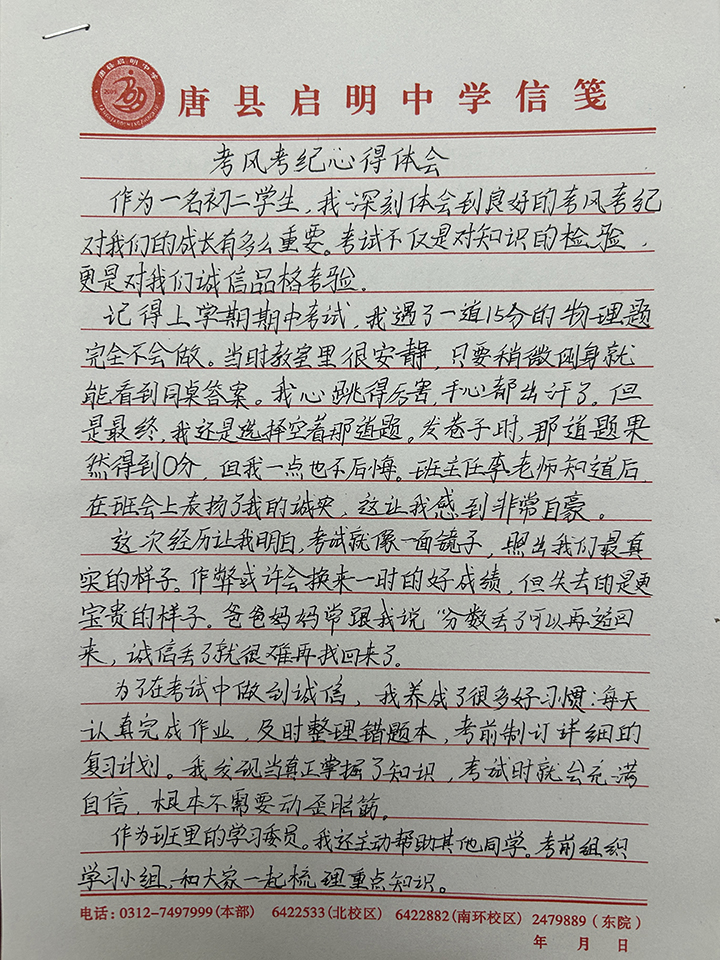 唐县启明中学
唐县启明中学信笺
考风考纪心得体会
作为一名初二学生，我深刻体会到良好的考风考纪
对我们的成长有多么重要。考试不仅是对知识的检验，
更是对我们诚信品格考验。
记得上学期期中考试，我遇了一道15分的物理题
完全不会做。当时教室里很安静，只要稍微侧身就
能看到同桌答案。我心跳得厉害，手心都出汗了。但
是最终，我还是选择空着那道题。发卷子时，那道题果
然得到0分，但我一点也不后悔。班主任李老师知道后，
在班会上表扬了我的诚实，这让我感到非常自豪。
这次经历让我明白，考试就像一面镜子，照出我们最真
实的样子。作弊或许会换来一时的好成绩，但失去的是更
宝贵的样子。爸爸妈妈常跟我说“分数丢了可以再追回
来，诚信丢了就很难再找回来了。
为了在考试中做到诚信，我养成了很多好习惯：每天
认真完成作业，及时整理错题本，考前制订详细的
复习计划。我发现当真正掌握了知识，考试时就会充满
自信，根本不需要动歪脑筋。
作为班里的学习委员。我还主动帮助其他同学。考前组织
学习小组，和大家一起梳理重点知识。
电话：0312-7497999(本部) 6422533(北校区) 6422882(南环校区) 2479889（东院）
年 月 日